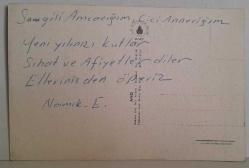 Sevgili Amcacığım Cici Anneciğim
Yeni yılınızı kutlar
Sıhat ve Afiyetler diler
Ellerinizden öperiz
Namık - E.